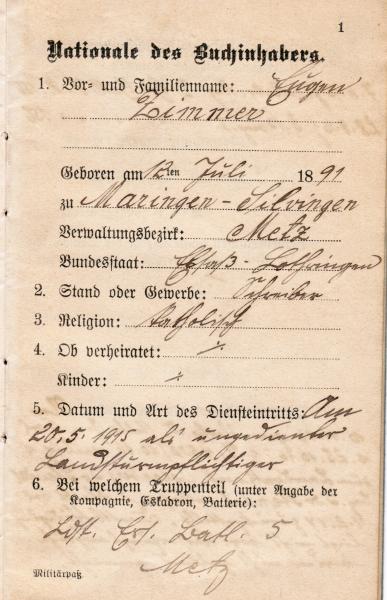 1
Nationale des Buchinhabers.
1. Vor- und Familienname: Eugen
Zimmer
Geboren am 12ten Juli 1891
zu Maringen-Silvingen
Verwaltungsbezirk: Metz
Bundesstaat: Elsaß-Lothringen
2. Stand oder Gewerbe: Schreiber
3. Religion: katholisch
4. Ob verheiratet: ./.
Kinder: ./.
5. Datum und Art des Diensteintritts: Am
20.5.1915 als ungedienter
Landsturmpflichtiger
6. Bei welchem Truppenteil (unter Angabe der
Kompagnie, Eskadron, Batterie):
Ldst. Ers. Batl. 5
Metz
Militärpaß